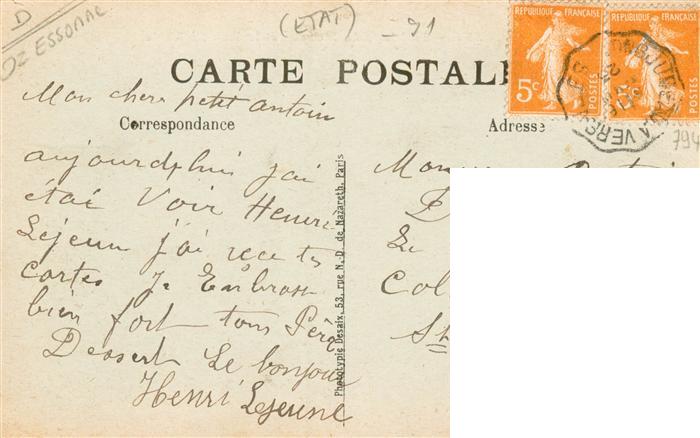 D
Dz ESSONNE
(ETAT) - 91
REPUBLIQUE FRANÇAISE
5c POSTES
REPUBLIQUE FRANÇAISE
5c POSTES
794
CARTE POSTALE
Mon cher petit antoin
Correspondance
Adresse
aujourdphui jai
étai Voir Henri
Lejeun j'ai rece tes
cartes Je Embrass
bien fort tons Père
Dessert Le bonjour
Henri Lejeune
Phototypie Desaix, 53, rue N.-D. de Nazareth, Paris
Mon
D
Le
Col
St